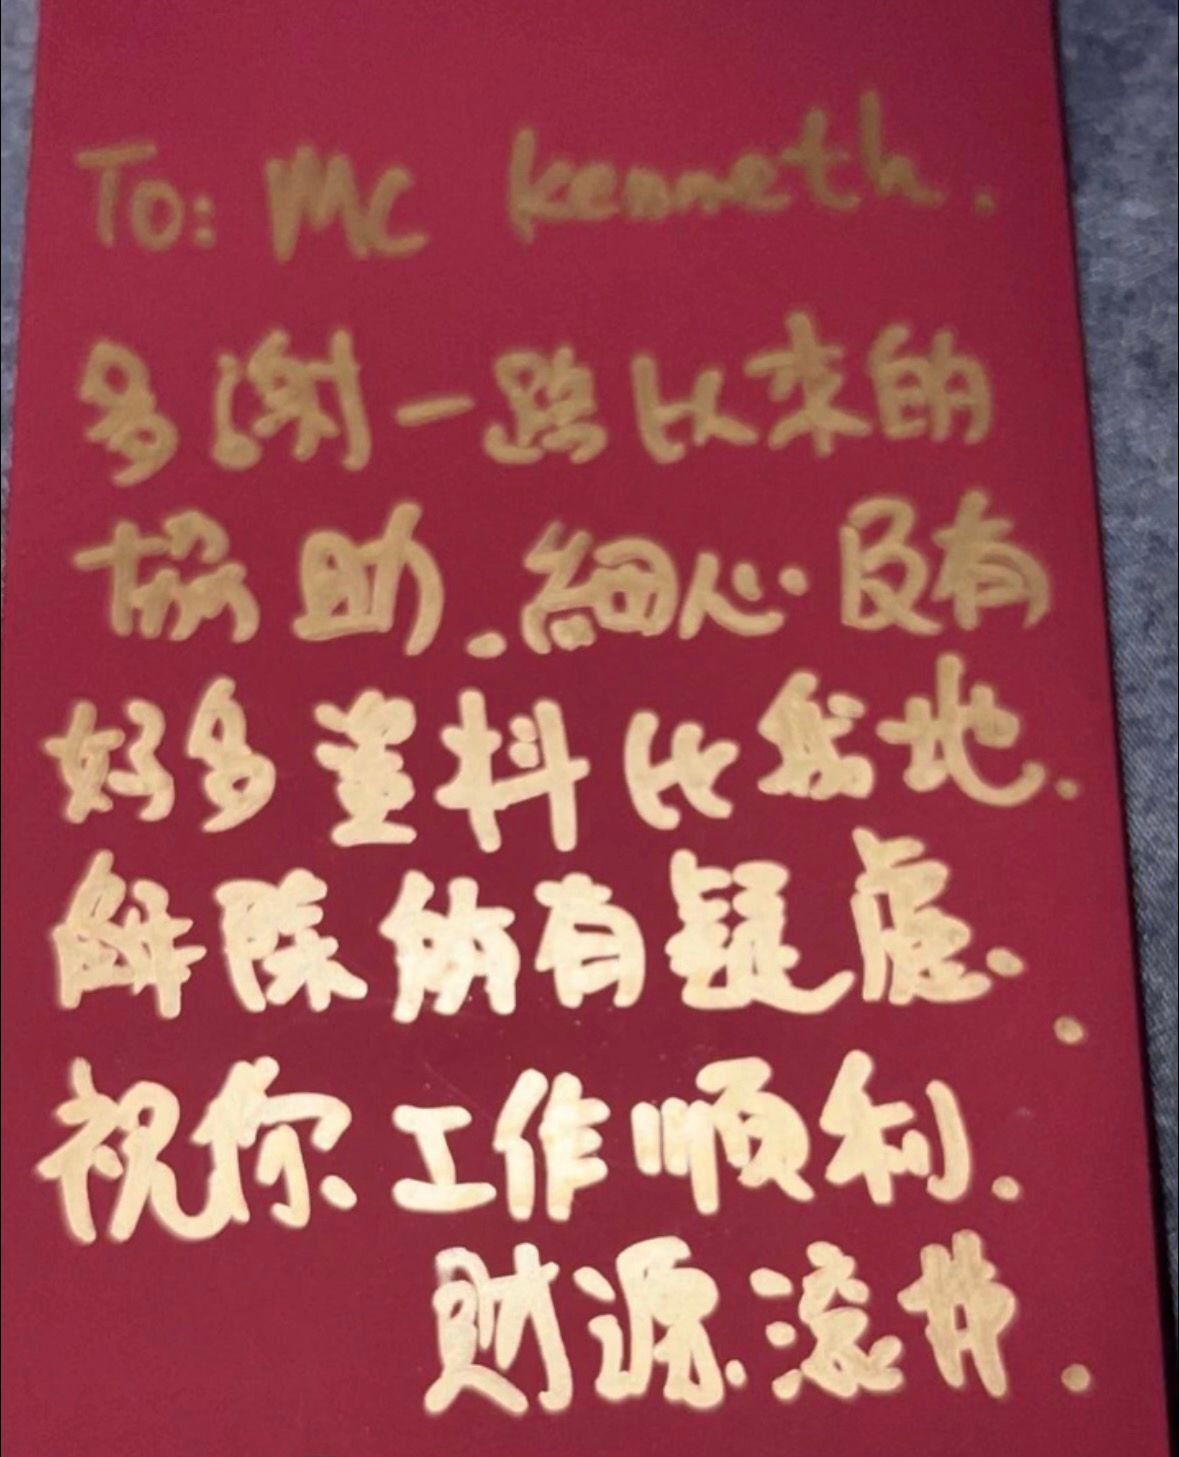 To: MC kenneth.
多謝一路以來的
協助.細心及有
好多資料比我地.
解除所有疑慮.
祝你工作順利.
財源滾滾.